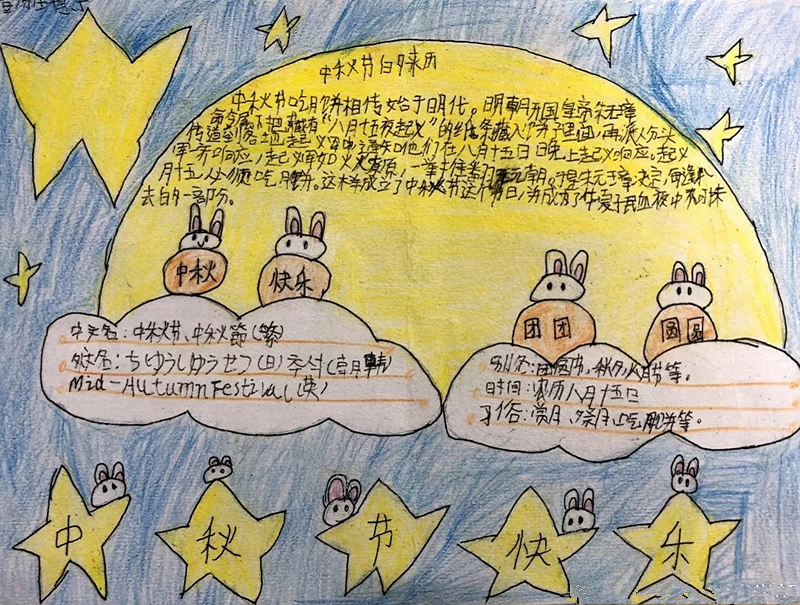 中秋节的来历
中秋节吃月饼相传始于明代。明朝开国皇帝朱元璋
命令属下把藏有"八月十五夜起义"的纸条藏入饼子里面,再派人分头
传送到各地起义军中,通知他们在八月十五日晚上起义响应。起义
军齐响应,起义军如火燎原,一举推翻元朝。于是朱元璋决定,每逢八
月十五,人必须吃月饼。这样成立了中秋节这个节日,并成为了华夏子民血液中不可抹
去的一部份。
中秋
快乐
团团
圆圆
中文名:中秋节、中秋節(繁)
外文名:ちゅうしゅうせつ(日)추석(韩)
Mid-Autumn Festival(英)
别名:团圆节、秋夕、八月节等。
时间:农历八月十五日
习俗:赏月、祭月、吃月饼等。
中
秋
节
快
乐